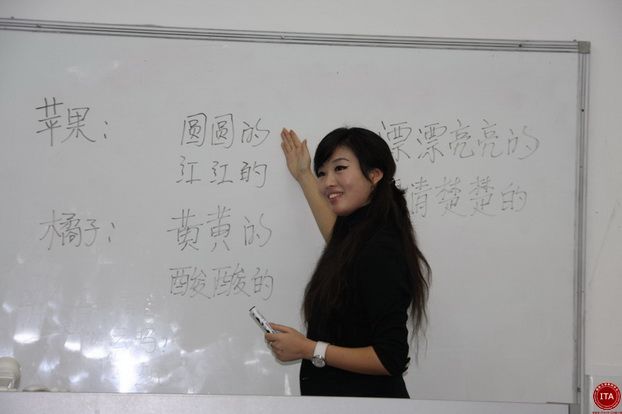 苹果： 圆圆的
红红的
橘子： 黄黄的
酸酸的
漂漂亮亮的
清楚楚的
ITA